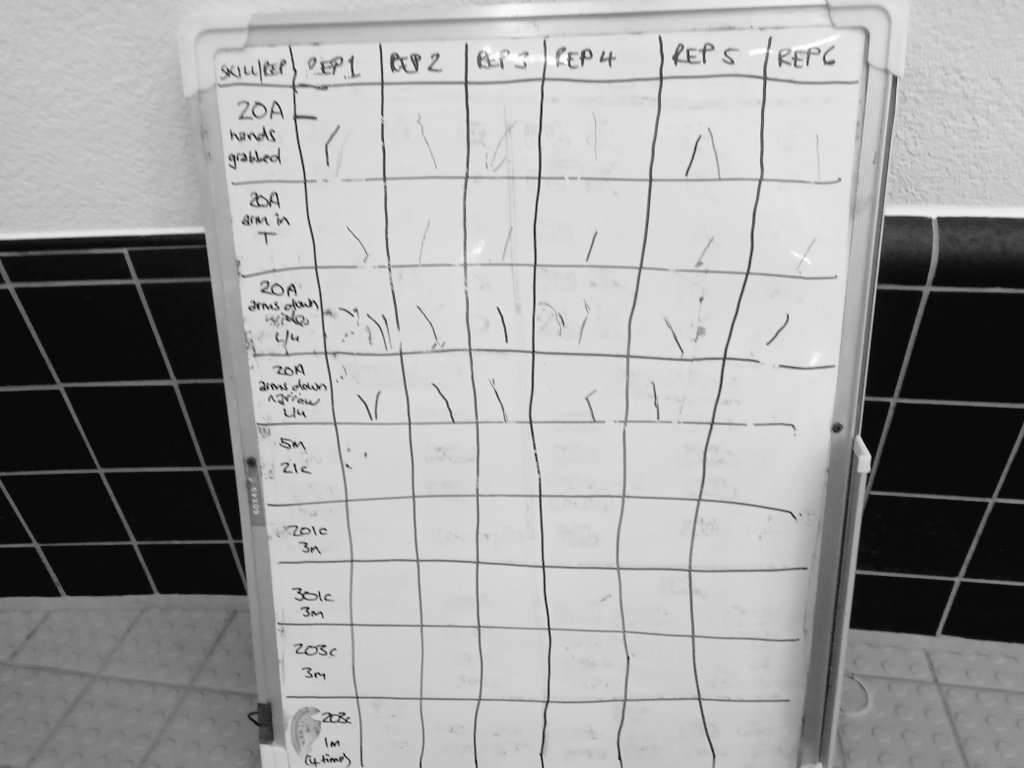 SKILL/REP REP 1 REP 2 REP 3 REP 4 REP 5 REP 6
20A
hands
grabbed
20A
arm in
T
20A
arms down
L/U
20A
arms down
narrow
L/U
5m
21c
201c
3m
301c
3m
203c
3m
203c
1m
(4 time)
60X45